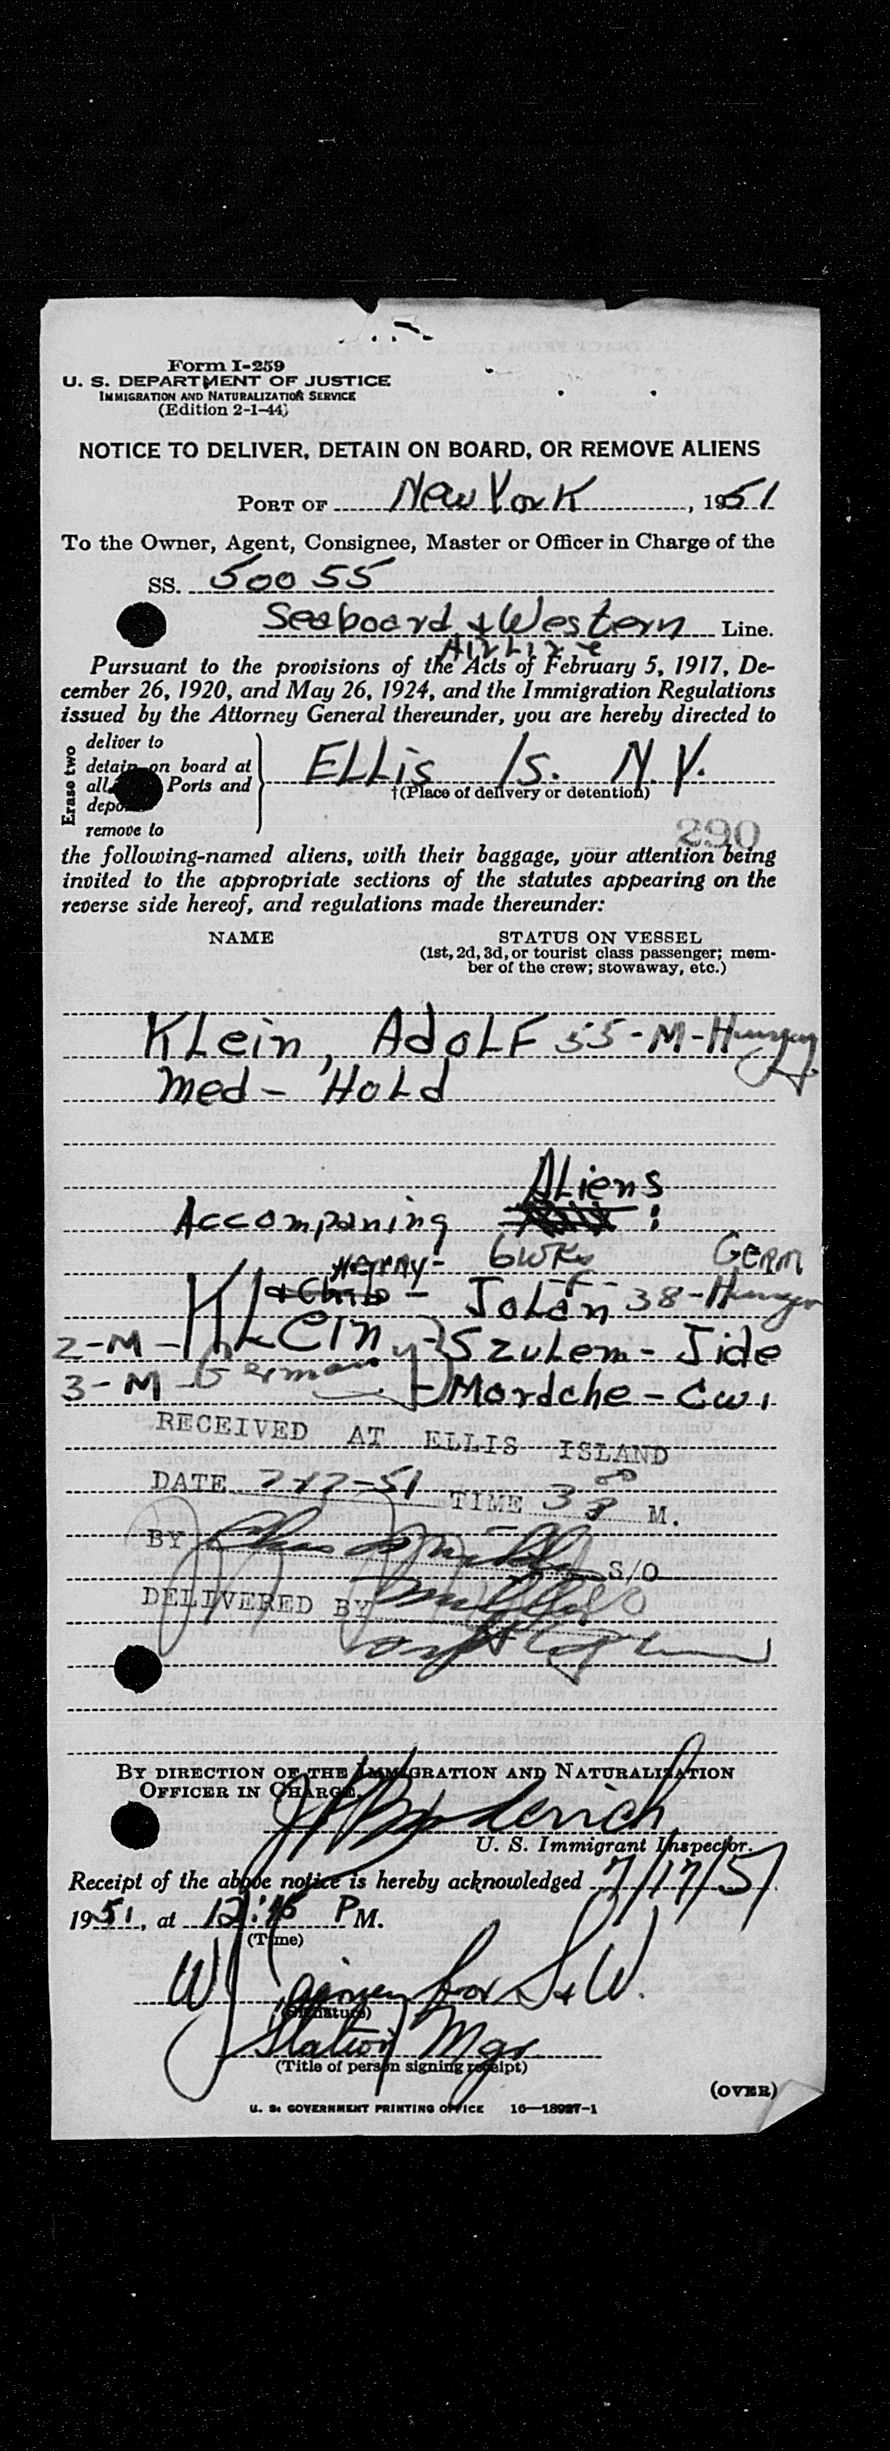 Form I-259
U. S. DEPARTMENT OF JUSTICE
IMMIGRATION AND NATURALIZATION SERVICE
(Edition 2-1-44)
NOTICE TO DELIVER, DETAIN ON BOARD, OR REMOVE ALIENS
PORT OF New York, 1951
To the Owner, Agent, Consignee, Master or Officer in Charge of the
SS. 50055
Seaboard & Western Line.
Airline
Pursuant to the provisions of the Acts of February 5, 1917, De-
cember 26, 1920, and May 26, 1924, and the Immigration Regulations
issued by the Attorney General thereunder, you are hereby directed to
Erase two
deliver to
detain on board at
all Ports and
remove to
ELLis Is. N.Y.
†(Place of delivery or detention)
290
the following-named aliens, with their baggage, your attention being
invited to the appropriate sections of the statutes appearing on the
reverse side hereof, and regulations made thereunder:
NAME STATUS ON VESSEL
(1st, 2d, 3d, or tourist class passenger; mem-
ber of the crew; stowaway, etc.)
KLein, AdoLF 55-M-Hungary
Med - HoLd
ALiens
Accompaning :
Henry- 6wks GERM
- JoLan 38-F-Hungary
KLein
2-M - Szulem - Jide
3-M - German - Mordche - Cwi
RECEIVED AT ELLIS ISLAND
DATE 7-17-51 TIME 3 M.
BY S/O
DELIVERED BY
BY DIRECTION OF THE IMMIGRATION AND NATURALIZATION
OFFICER IN CHARGE.
U. S. Immigrant Inspector.
Receipt of the above notice is hereby acknowledged 7/17/51
1951, at 12:15 PM.
(Time)
for S & W.
(Signature)
Station Mgr
(Title of person signing receipt)
(OVER)
U. S. GOVERNMENT PRINTING OFFICE 16—18927-1